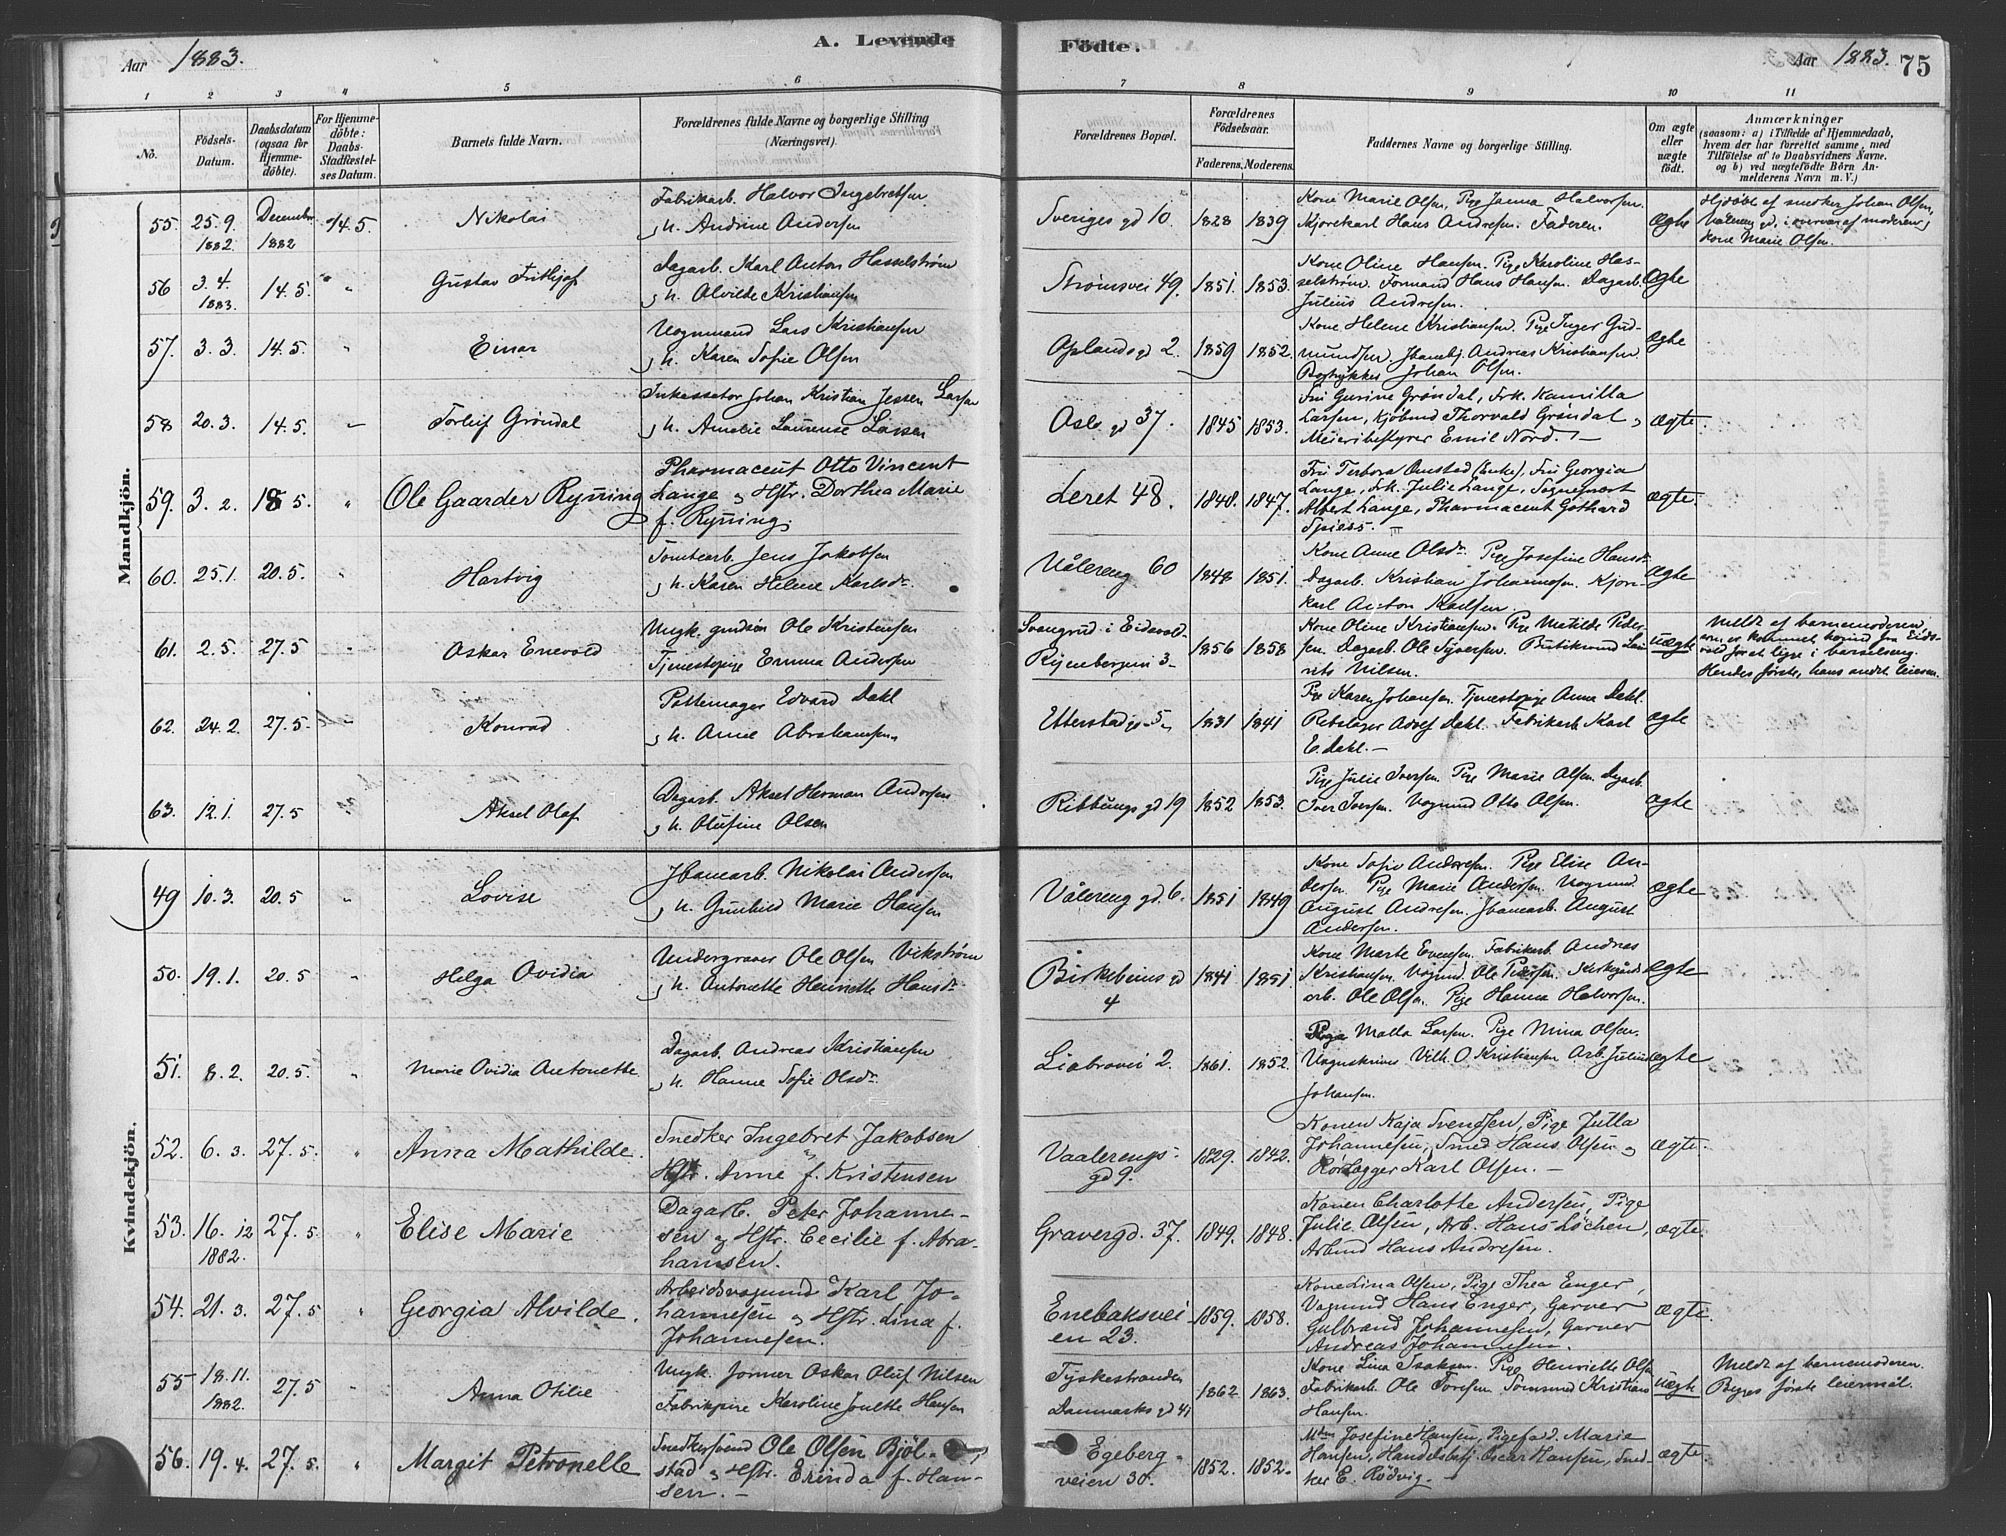 Aar 1883.
A. Levende Födte.
Aar 1883. 75
1 2 3 4 5 6 7 8 9 10 11
No.
Födsels-Datum.
Daabsdatum (ogsaa for Hjemme-döbte).
For Hjemme-döbte: Daabs-Stadfæstel-ses Datum.
Barnets fulde Navn.
Forældrenes fulde Navne og borgerlige Stilling (Næringsvei).
Forældrenes Bopæl.
Forældrenes Födselsaar.
Faderens. Moderens.
Faddernes Navne og borgerlige Stilling.
Om ægte eller uægte födt.
Anmærkninger
(saasom: a) i Tilfælde af Hjemmedaab, hvem der har forrettet samme, med Tilföielse af to Daabsvidners Navne, og b) ved uægtefödte Börn An-melderens Navn m. V.)
Mandkjön.
55. 25.9. 1882 December 1882 14.5. Nikolai
Fabrikarb. Halvor Ingebretsen
h. Andrine Andersen
Sveriges gd 10. 1828 1839
Kone Marie Olsen, Pige Janna Halvorsen.
Kjørekarl Hans Andresen. Faderen.
Ægte
Hjdøbt af snedker Johan Olsen,
kone Marie Olsen.
56 3.4. 1883. 14.5. " Gustav Frithjof
Dagarb. Karl Anton Hasselstrøm
h. Alvilde Kristiansen
Strømsvei 49. 1851. 1853.
Kone Oline Hansen. Pige Karoline Has-
selstrøm. Formand Hans Hansen. Dagarb.
Julius Andresen.
Ægte
57. 3.3. 14.5. " Einar
Vognmand Lars Kristiansen
h. Karen Sofie Olsen
Oplandsgd 2. 1859 1852.
Kone Helene Kristiansen. Pige Inger Gud-
mundsen. Jbanebtj. Andreas Kristiansen
Bogtrykker Johan Olsen.
ægte
58 20.3. 14.5. Torleif Grøndal
Inkassator Johan Kristian Jessen Larsen
h. Amalie Laurense Larsen
Oslo gd 37. 1845 1853.
Fru Gurine Grøndal, Frk. Kamilla
Larsen, Kjøbmd Thorvald Grøndal,
Meieribestyrer Emil Nord.
ægte.
59. 3. 2. 18 5. " Ole Gaarder Rynning
Pharmaceut Otto Vincent
Lange og Hstr. Dorthea Marie
f. Rynning.
Leret 48. 1848. 1847.
Fru Terbora Onstad (Enke), Fru Georgia
Lange, Frk. Julie Lange, Sogneprest
Albert Lange, Pharmaceut Gothard
Spiess.
ægte.
60. 25.1. 20.5. " Hartvig
Tomtearb. Jens Jakobsen
h. Karen Helene Karlsdr.
Vålereng 60 1848 1851.
Kone Anne Olsdr. Pige Josefine Hansdr
Dagarb. Kristian Johannesen. Kjøre-
karl Anton Karlsen.
ægte
61. 2.5. 27.5 " Oskar Enevold
Ungk. grdsøn Ole Kristensen
Tjenestepige Emma Andersen
i Eidsvold-
3 1856 1858
Kone Oline Kristiansen. Pige Matilde Peder-
sen. Dagarb. Ole Syversen. Butiksmand Lau-
rits Nilsen.
uægte
Meldt af barnemoderen,
som er kommet herind fra Eids-
vold for at ligge i barselseng.
Hendes første, hans andet leierm.
62. 24.2. 27.5. Konrad
Pottemager Edvard Dahl
h. Anne Abrahamsen
Etterstadgd 5 1831 1841
Pige Karen Johansen. Tjenestepige Anna Dahl.
Rebslager Adolf Dahl. Fabrikarb. Karl
E. Dahl.
ægte
63. 12.1. 27.5 Aksel Olaf
Dagarb. Aksel Herman Andersen
h. Olufine Olsen
Ribbungs gd 19 1852 1853.
Pige Julie Iversen. Pige Marie Olsen. Dagarb.
Iver Iversen. Vognmd Otto Olsen.
ægte
Kvindekjön.
49 10.3. 20.5 " Lovise
Jbanearb. Nikolai Andersen
h. Gunhild Marie Hansen
Vålereng gd. 6. 1851 1849
Kone Sofie Andresen. Pige Elise An-
dersen. Pige Marie Andersen. Vognmd.
August Andresen. Jbanearb. August
Andersen.
ægte
50. 19.1. 20.5 " Helga Ovidia
Undergraver Ole Olsen Vikstrøm
h. Antonette Henriette Hansdr.
Birkebeins gd 4 1841 1851
Kone Marte Evensen. Fabrikarb. Andreas
Kristiansen. Vognmd. Ole Pedersen. Kirkegårds-
arb. Ole Olsen. Pige Hanna Halvorsen.
ægte
51. 8.2. 20.5. " Marie Ovidia Antonette
Dagarb. Andreas Kristiansen
h. Hanne Sofie Olsdr.
Liabrovei 2. 1861. 1852.
Pige Malla Larsen. Pige Mina Olsen.
Vilh. O. Kristiansen Arb. Julius
Johansen.
ægte
52. 6. 3. 27.5. " Anna Mathilde.
Snedker Ingebret Jakobsen
og Hstr. Anne f. Kristensen
Vaalerengs-
gd 9. 1829. 1842.
Konen Kaja Svendsen, Pige Julla
Johannesen, Smed Hans Olsen og
Rørlægger Karl Olsen.
ægte.
53. 16. 12 1882. 27. 5. " Elise Marie
Dagarb. Peter Johanne-
sen og Hstr. Cecilie f. Abra-
hamsen.
Gravergd. 37. 1849. 1848.
Konen Charlotte Andersen, Pige
Julie Olsen, Arb. Hans Løchen,
Arbmd Hans Andresen.
ægte.
54. 21. 3. 27. 5 " Georgia Alvilde.
Arbeidsvognmd Karl Jo-
hannesen og Hstr. Lina f.
Johannesen.
Enebaksvei-
en 23. 1859. 1858.
Kone Lina Olsen, Pige Thea Enger,
Vognmd Hans Enger, Garver
Gulbrand Johannesen, Garver
Andreas Johannesen.
ægte.
55 18.11. 1882. 27.5 " Anna Otilie
Ungk. Former Oskar Oluf Nilsen
Fabrikpike Karoline Jonette Hansen
Tyskestranden
Danmarks gd 41 1862 1863.
Kone Lina Isaksen. Pige Henriette Olsen
Fabrikarb. Ole Toresen. Tomtemd Kristian
Hansen.
uægte
Meldt af barnemoderen.
Begges første leiermål.
56. 19. 4. 27. 5. " Margit Petronelle
Snedkersvend Ole Olsen Bjøl-
stad og Hstr. Erinda f. Han-
sen.
Egeberg-
veien 30. 1852. 1852.
Mdm Josefine Hansen, Pigefadd. Maria
Hansen, Handelsbtj. Oscar Hansen, Sned-
ker E. Rødvig.
ægte.